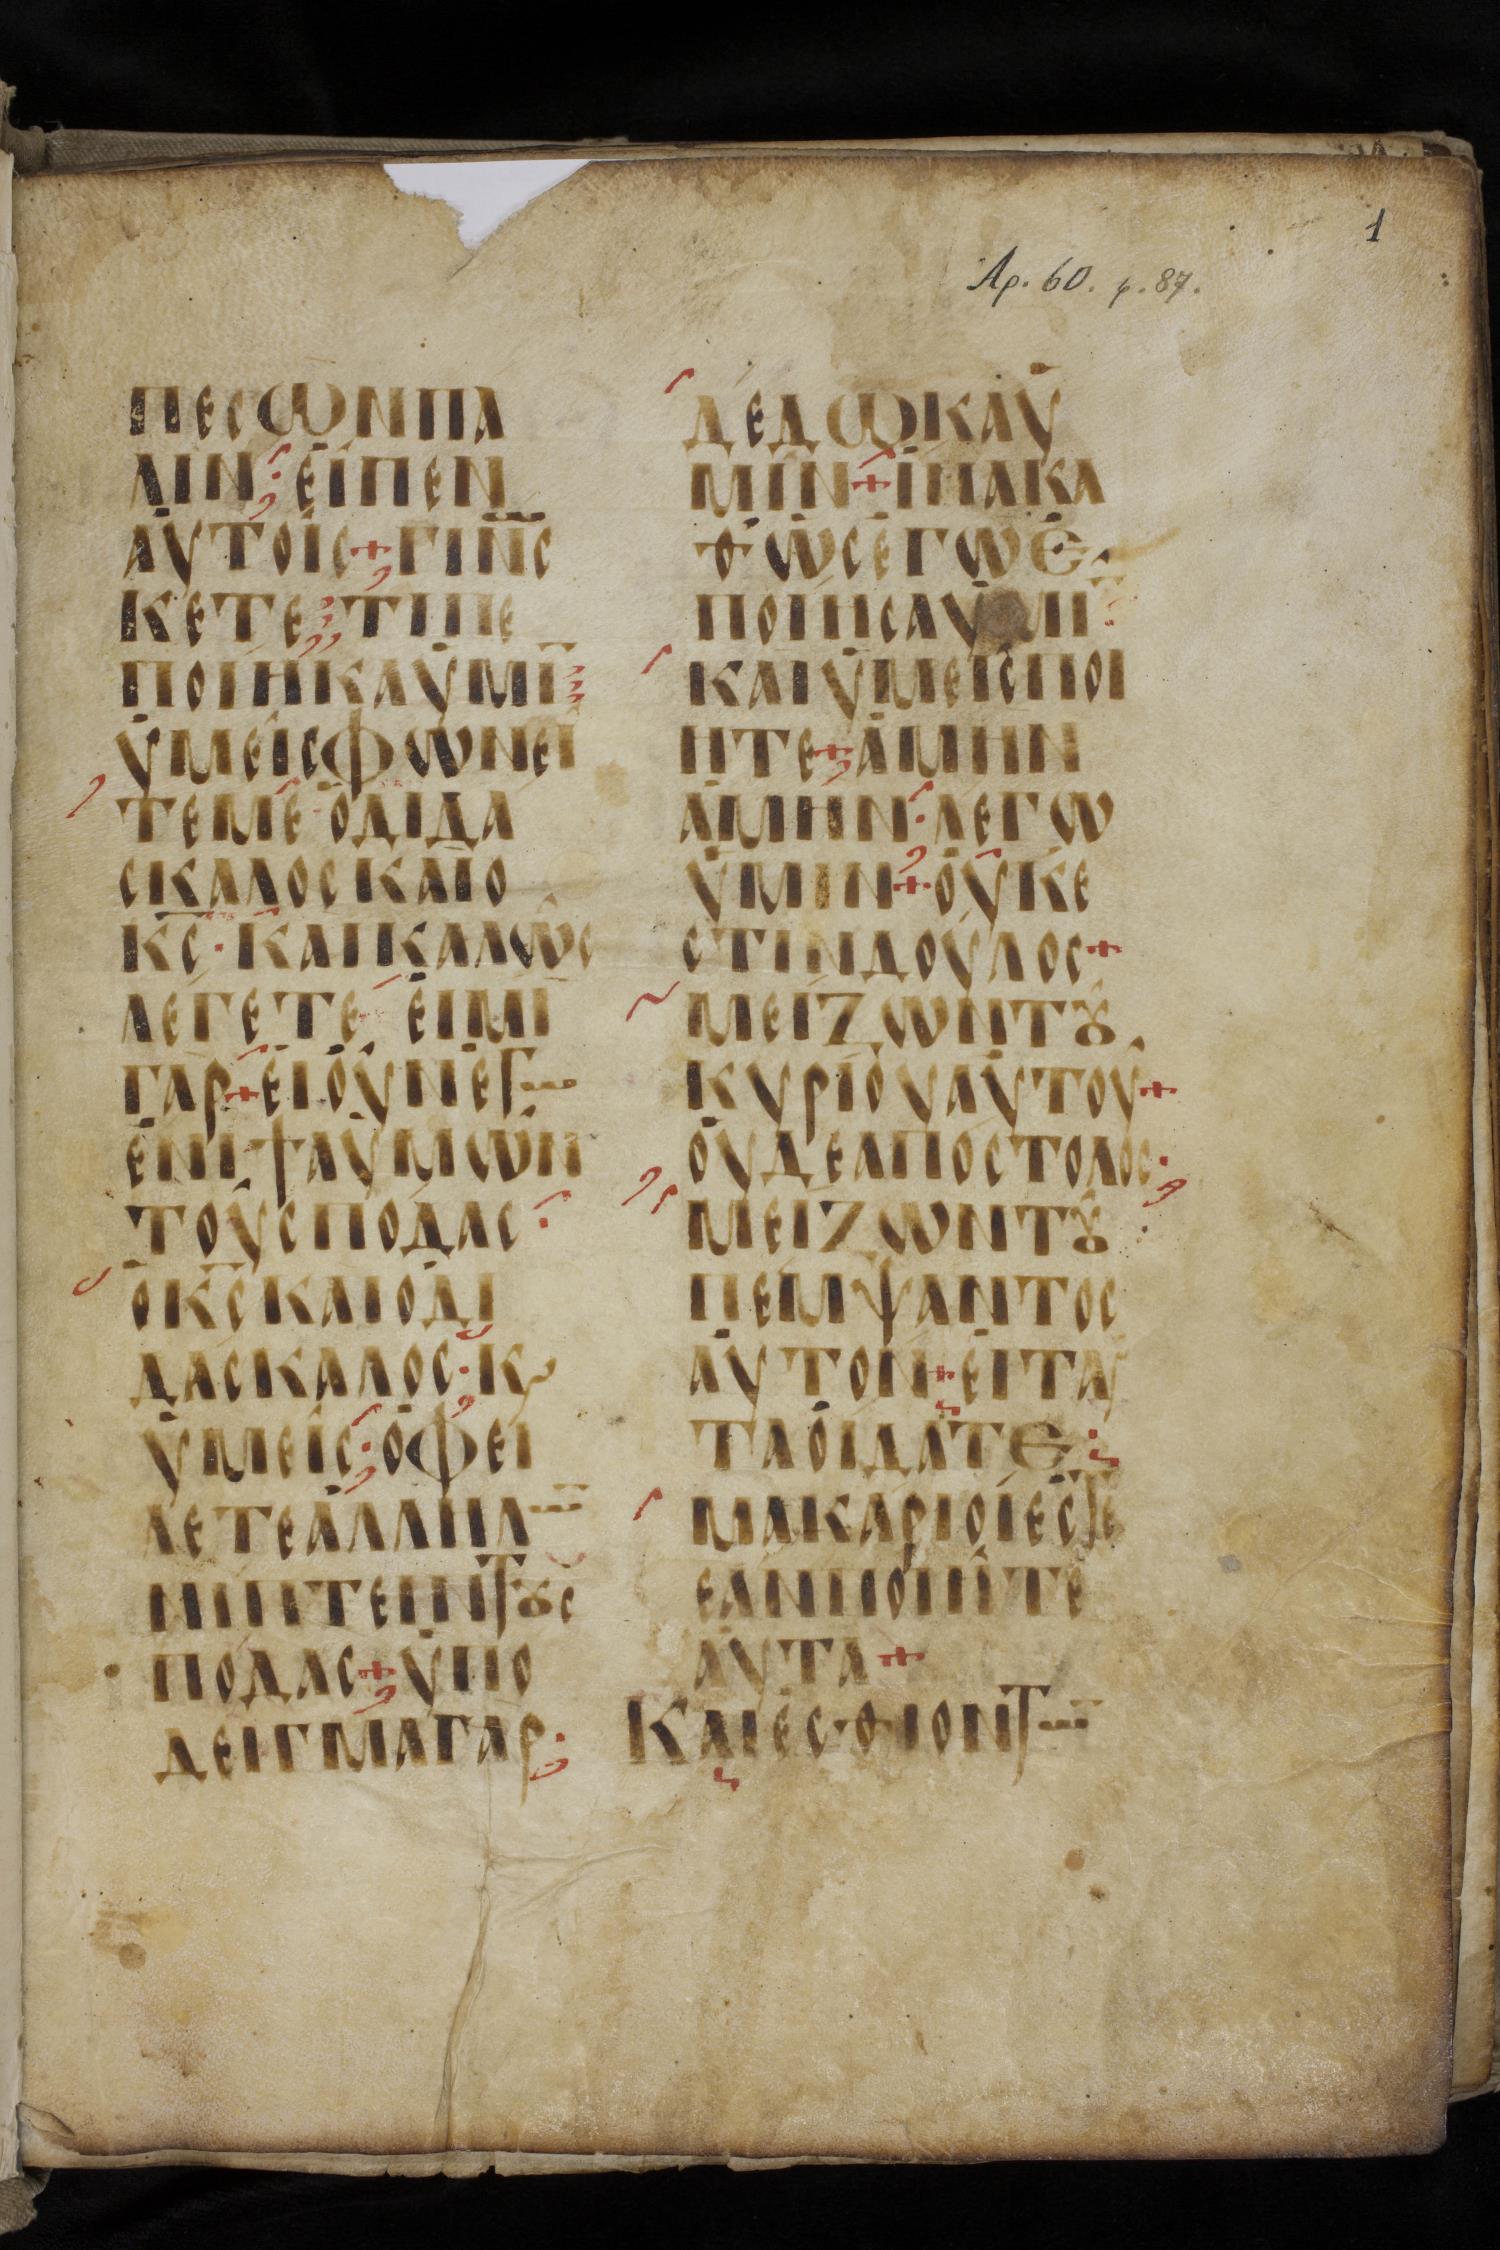 1
Ap. 60. p. 87.
ΠΕCΩΝΠΑ
ΛΙΝ· ΕΙΠΕΝ
ΑΥΤΟΙC+ΓΙΝC
ΚΕΤΕ ΤΙΠΕ
ΠΟΙΗΚΑΥΜΙ̅
ΥΜΕΙCΦΩΝΕΙ
ΤΕΜΕ ΟΔΙΔΑ
CΚΑΛΟCΚΑΙΟ
Κ̅C̅·ΚΑΙΚΑΛΩC
ΛΕΓΕΤΕ ΕΙΜΙ
ΓΑΡ+ΕΙΟΥΝΕΓ
ΕΝΙΨΑΥΜΩΝ
ΤΟΥCΠΟΔΑC·
ΟΚ̅C̅ΚΑΙΟΔΙ
ΔΑCΚΑΛΟC·Κ
ΥΜΕΙC·ΟΦΕΙ
ΛΕΤΕΑΛΛΗΛ
ΝΙΠΤΕΙΝΤȣC
ΠΟΔΑC+ΥΠΟ
ΔΕΙΓΜΑΓΑΡ·
ΔΕΔΩΚΑΥ
ΜΙΝ+ΙΝΑΚΑ
ΘΩCΕΓΩΕ
ΠΟΙΗCΑΥΜΙ̅
ΚΑΙΥΜΕΙCΠΟΙ
ΗΤΕ+ΑΜΗΝ
ΑΜΗΝ·ΛΕΓΩ
ΥΜΙΝ+ΟΥΚΕ
CΤΙΝΔΟΥΛΟC+
ΜΕΙΖΩΝΤȣ
ΚΥΡΙΟΥΑΥΤΟΥ+
ΟΥΔΕΑΠΟCΤΟΛΟC·
ΜΕΙΖΩΝΤȣ
ΠΕΜΨΑΝΤΟC
ΑΥΤΟΝ+ΕΙΤΑΥ
ΤΑΟΙΔΑΤΕ
ΜΑΚΑΡΙΟΙΕCΤΕ
ΕΑΝΠΟΙΗΤΕ
ΑΥΤΑ+
ΚΑΙΕCΘΙΟΝΤ